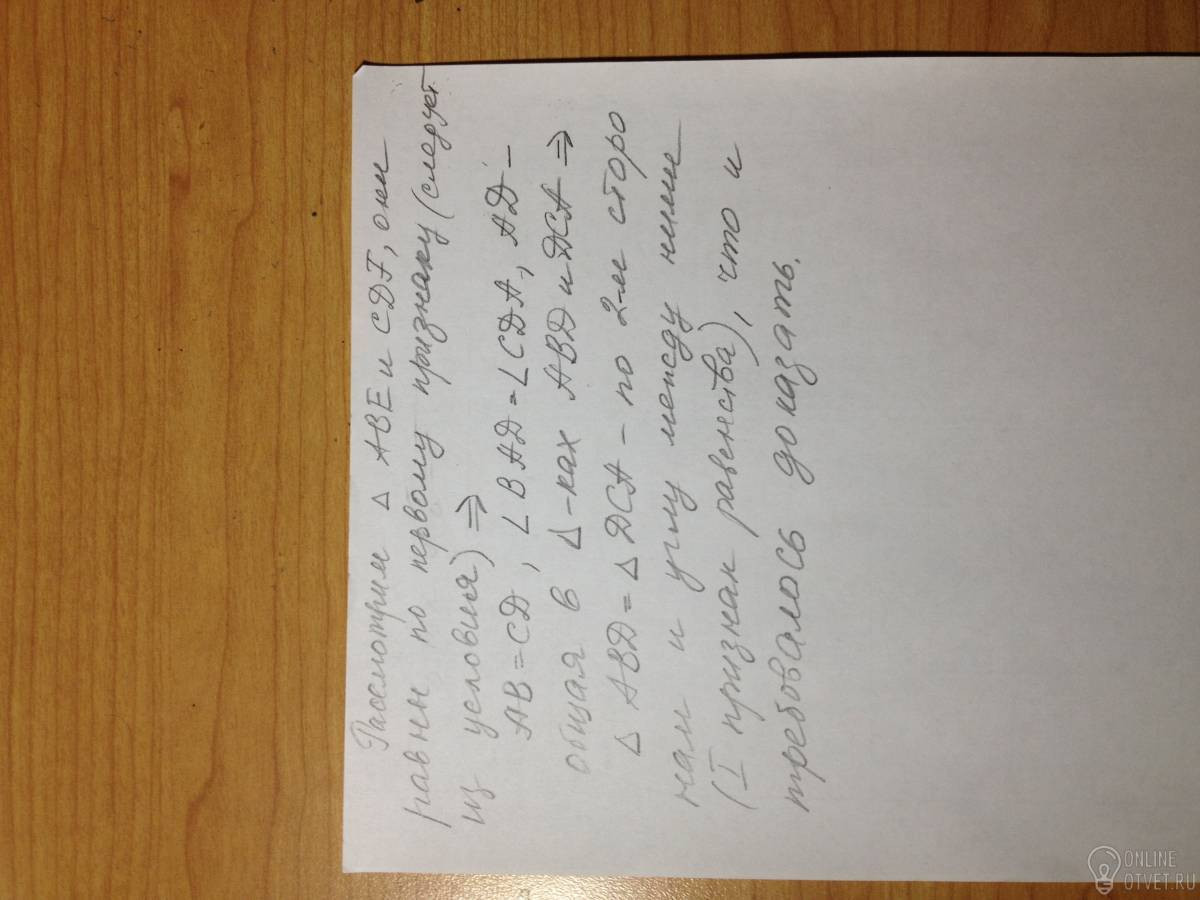 Рассмотрим △ ABE и CDF, они
равны по первому признаку (следует
из условия) ⇒
AB = CD, ∠BAD = ∠CDA, AD –
общая в △-ках ABD и DCA ⇒
△ ABD = △ DCA – по 2-м сторо
нам и углу между ними
(I признак равенства), что и
требовалось доказать.
ONLINE
OTVET.RU